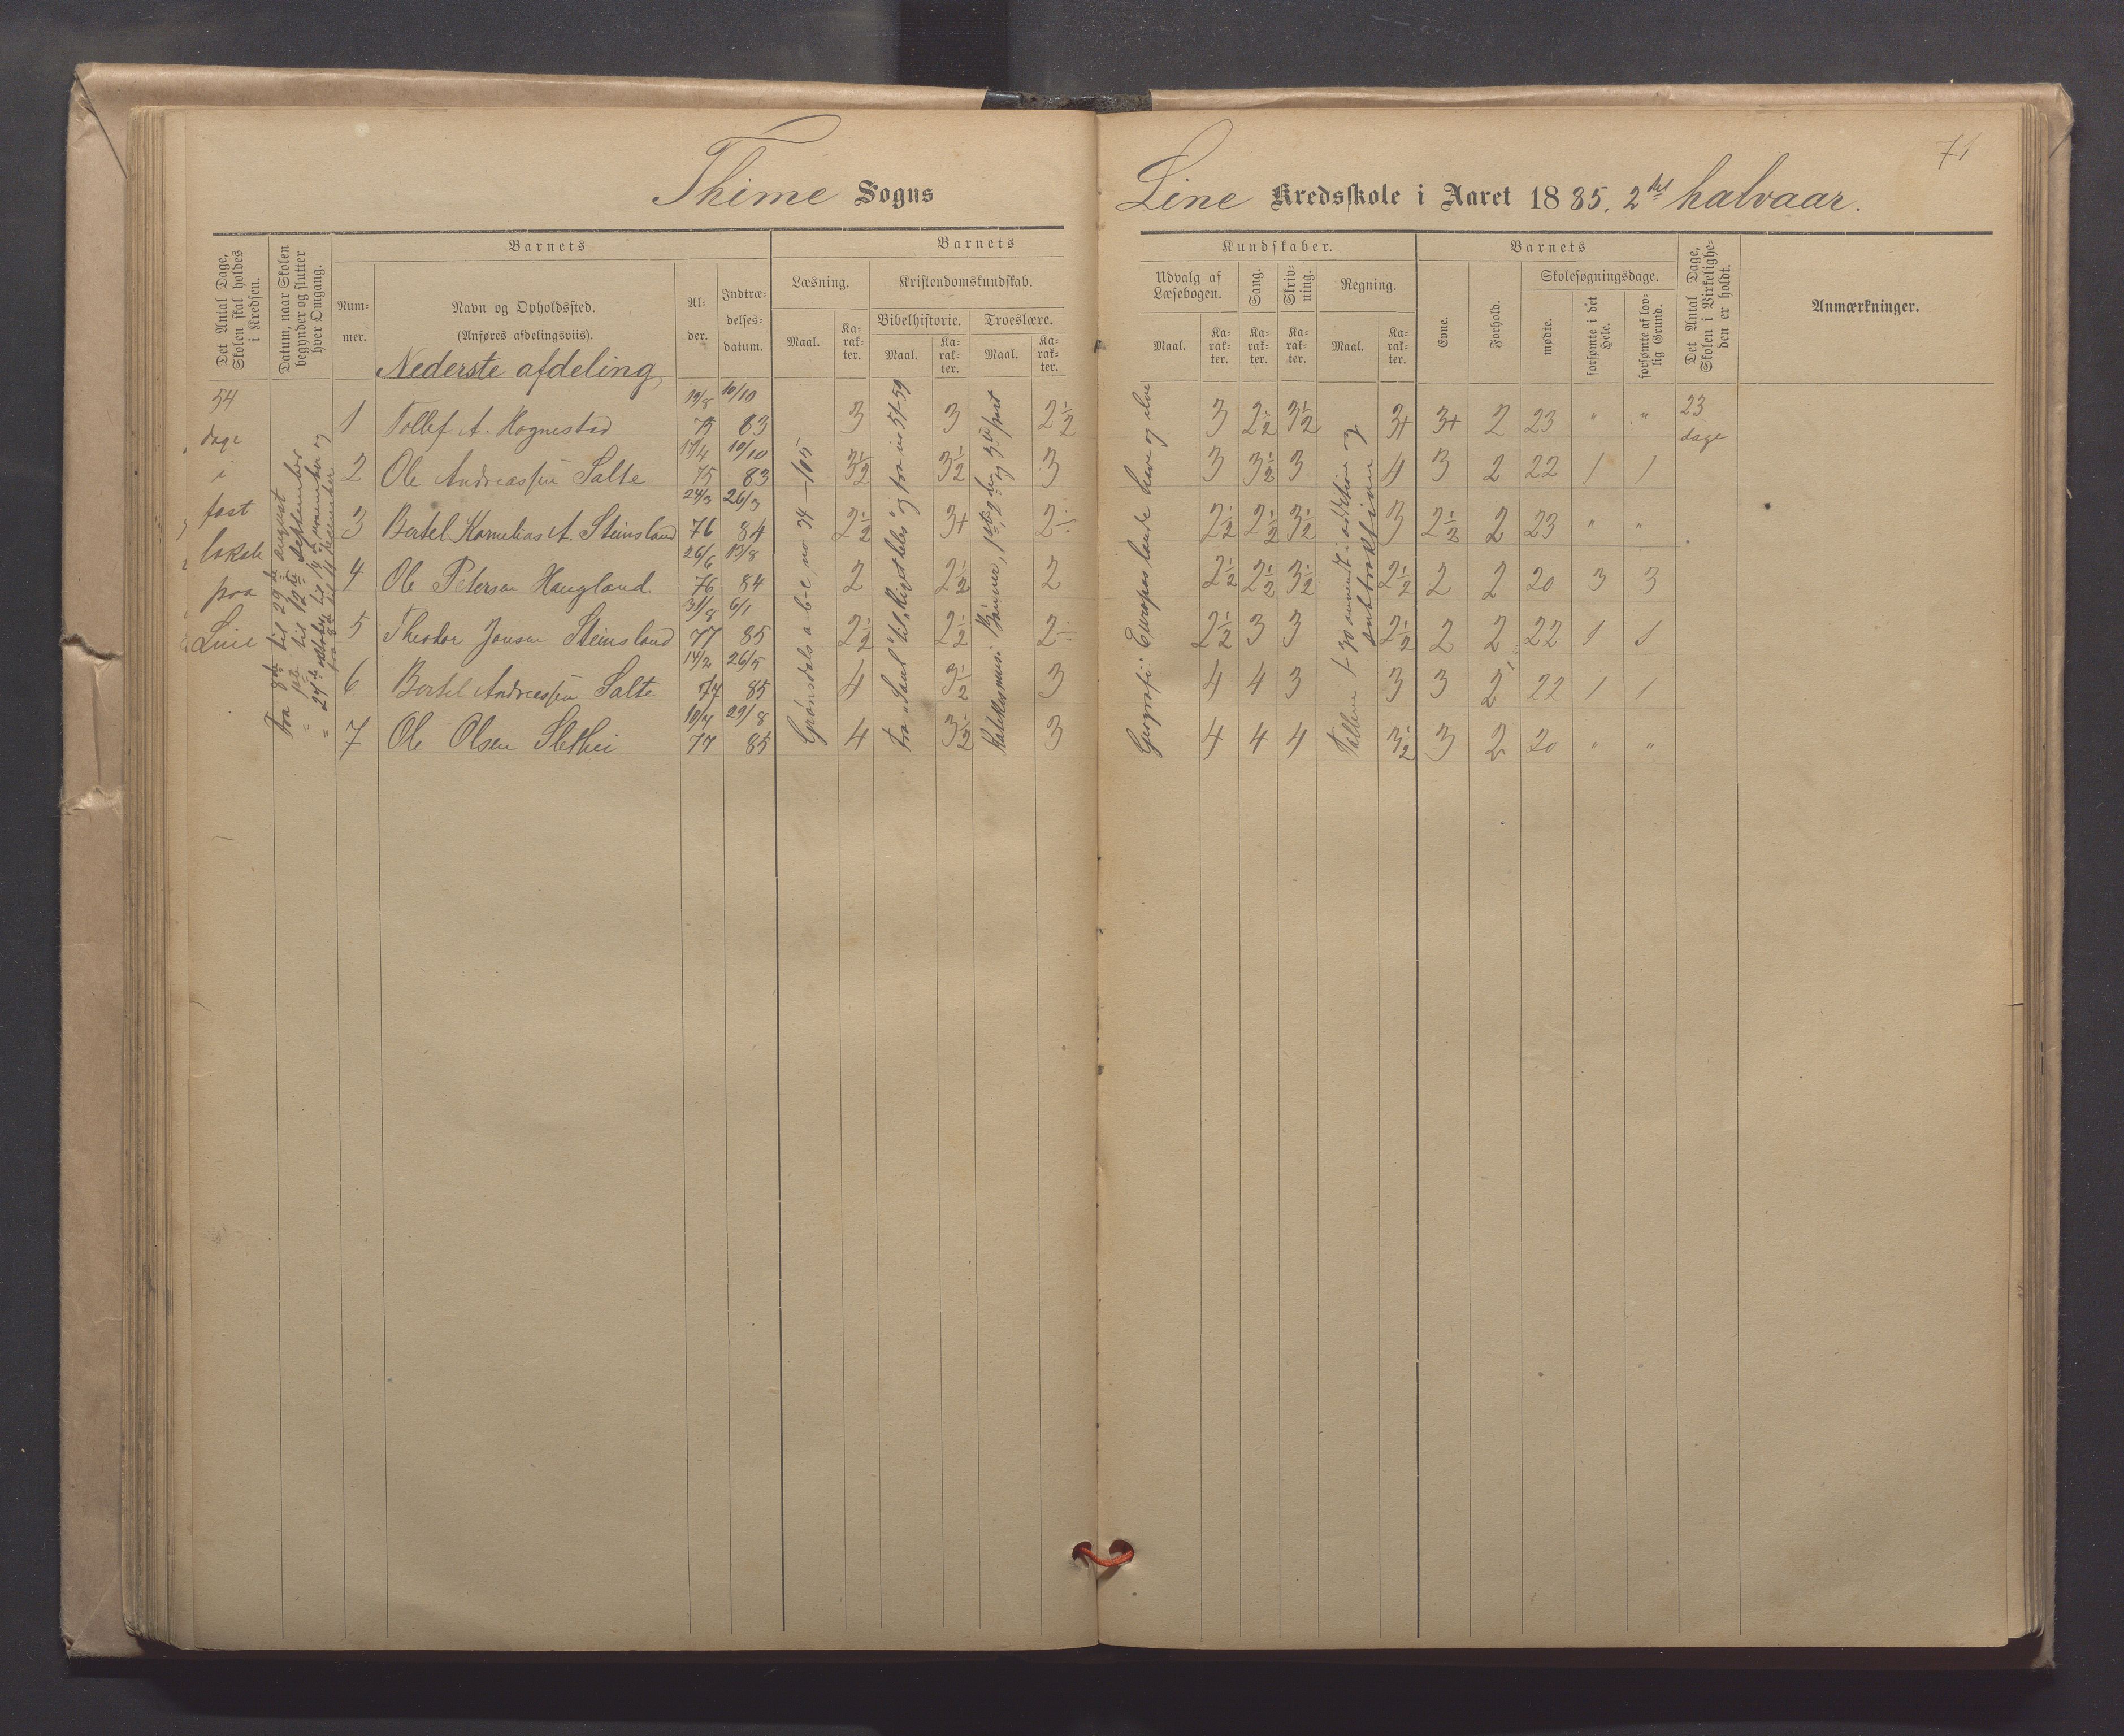 71
Thime Sogns
Line Kredsskole i Aaret 1885. 2det halvaar.
Det Antal Dage, Skolen skal holdes i Kredsen.
Datum, naar Skolen begynder og slutter hver Omgang.
Barnets
Num-mer.
Navn og Opholdssted.
(Anføres afdelingsviis).
Al-der.
Indtræ-delses-datum.
Barnets
Læsning.
Maal.
Ka-rak-ter.
Kristendomskundskab.
Bibelhistorie.
Maal.
Ka-rak-ter.
Troeslære.
Maal.
Ka-rak-ter.
Kundskaber.
Udvalg af Læsebogen.
Maal.
Ka-rak-ter.
Sang.
Ka-rak-ter.
Skriv-ning.
Ka-rak-ter.
Regning.
Maal.
Ka-rak-ter.
Barnets
Evne.
Forhold.
Skolesøgningsdage.
mødte.
forsømte i det Hele.
forsømte af lov-lig Grund.
Det Antal Dage, Skolen i Virkelighe-den er holdt.
Anmærkninger.
Nederste afdeling
54
dage
i
fast
lokale
paa
Line
fra 8de til 29de august
= 1ste til 12te september
Grønsdals a-b-c, no 34-105
fra "Saul" til "Riget deles" og fra no 57-59
Geografi: Europas lande have og elve
1 Tollef A. Hognestad 19/8 75 10/10 83 3 3 2½ 3 2½ 3½ 3+ 3+ 2 23 " " 23 dage
2 Ole Andreassen Salte 17/4 75 10/10 83 3½ 3½ 3 3 3½ 3 4 3 2 22 1 1
3 Bertel Kornelius A. Steinsland 24/3 76 26/3 84 2½ 3+ 2÷ 2½ 2½ 3½ 3 2½ 2 23 " "
4 Ole Peterson Haugland 26/6 76 13/8 84 2 2½ 2 2½ 2½ 3½ 2½ 2 2 20 3 3
5 Theodor Jonsen Steinsland 31/8 77 6/1 85 2½ 2½ 2÷ 2½ 3 3 2½ 2 2 22 1 1
6 Bertel Andreassen Salte 14/2 77 26/5 85 4 3½ 3 4 4 3 3 3 2 22 1 1
7 Ole Olsen Slethei 10/4 77 29/8 85 4 3½ 3 4 4 4 3½ 3 2 20 " "